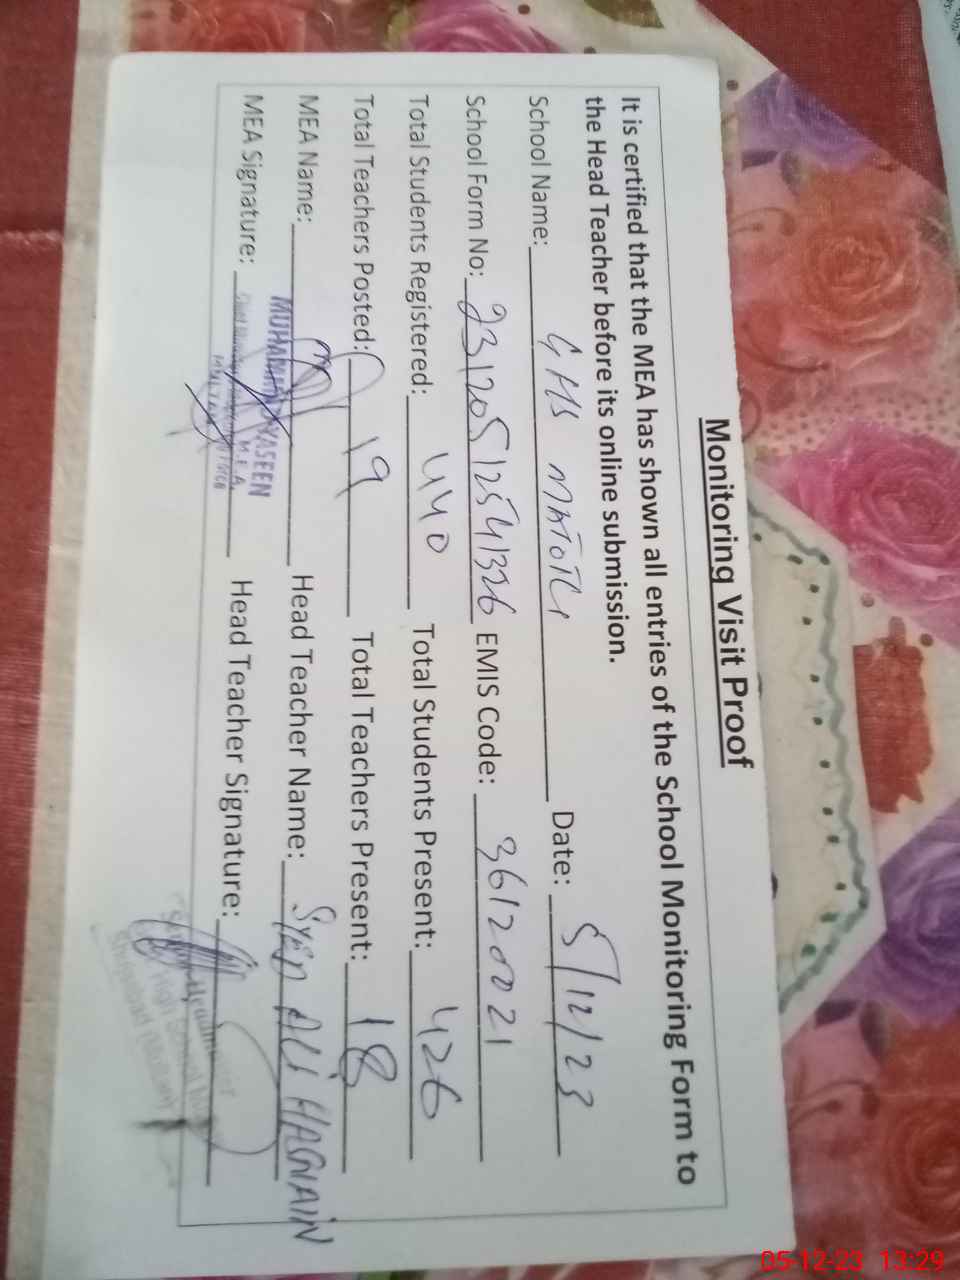 Monitoring Visit Proof
It is certified that the MEA has shown all entries of the School Monitoring Form to
the Head Teacher before its online submission.
School Name: GHS MATOTLI Date: 5/12/23
School Form No: 23120512541326 EMIS Code: 36120021
Total Students Registered: 440 Total Students Present: 426
Total Teachers Posted: 19 Total Teachers Present: 18
MEA Name: Head Teacher Name: SYED ALI HASNAIN
MUHAMMAD YASEEN
MEA Signature: Head Teacher Signature:
M.E.A.
05-12-23 13:29